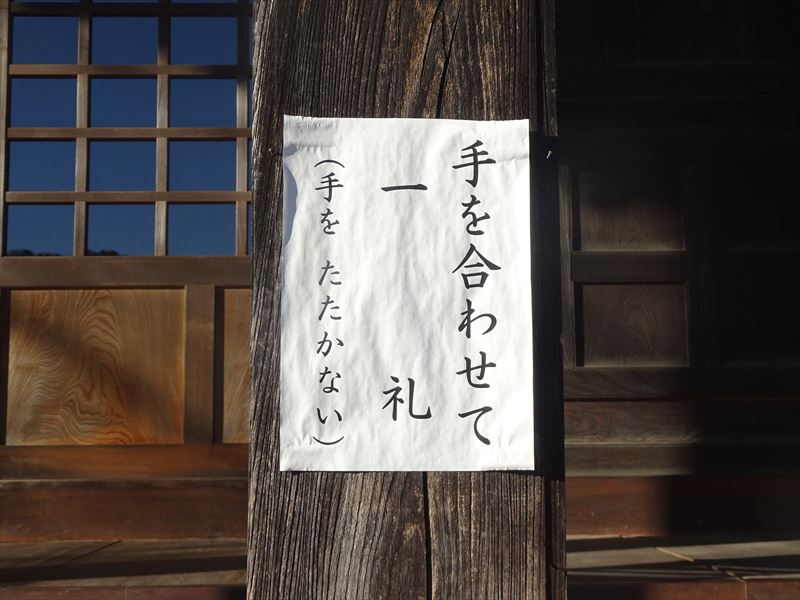 手を合わせて
一礼
(手を たたかない)